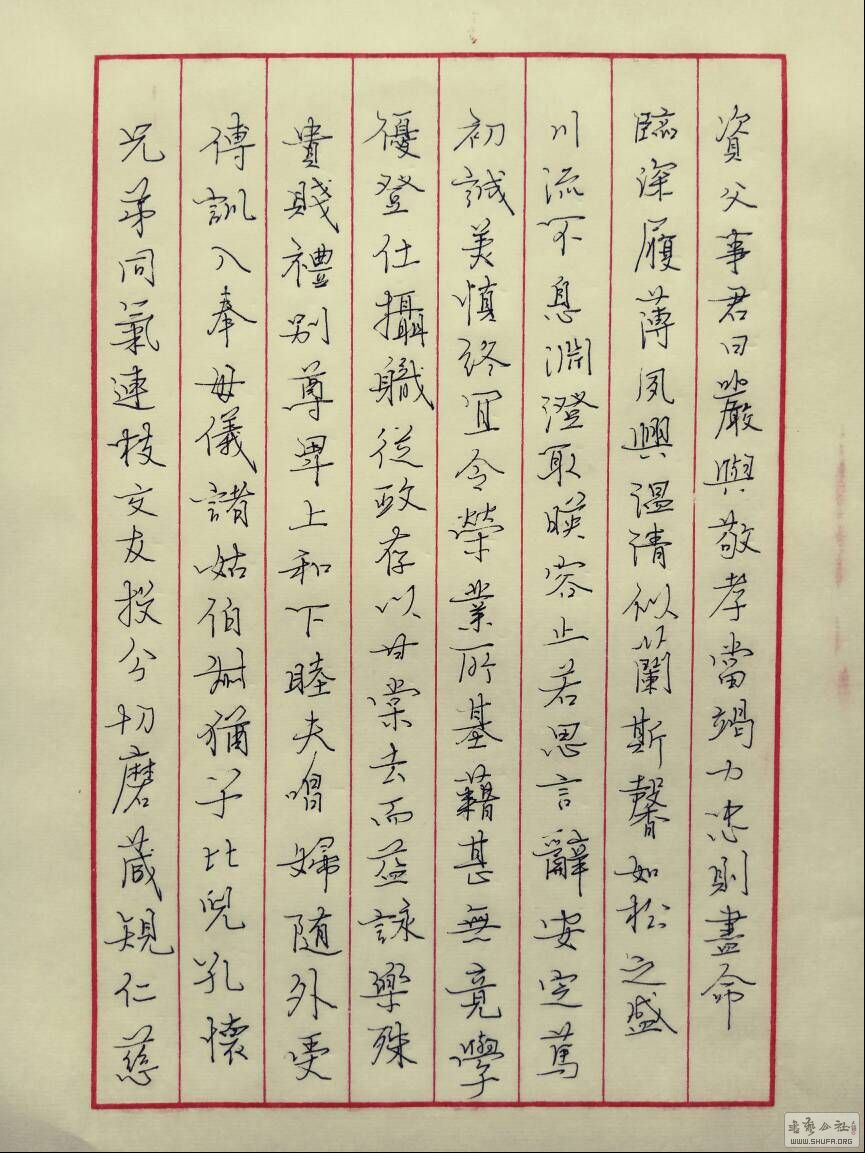 資父事君曰嚴與敬孝當竭力忠則盡命
臨深履薄夙興温凊似蘭斯馨如松之盛
川流不息淵澄取暎容止若思言辭安定篤
初誠美慎終宜令榮業所基藉甚無竟學
優登仕攝職從政存以甘棠去而益詠樂殊
貴賤禮别尊卑上和下睦夫唱婦随外受
傅訓入奉母儀諸姑伯叔猶子比兒孔懷
兄弟同氣連枝交友投分切磨葴規仁慈
書藝公社
WWW.SHUFA.ORG